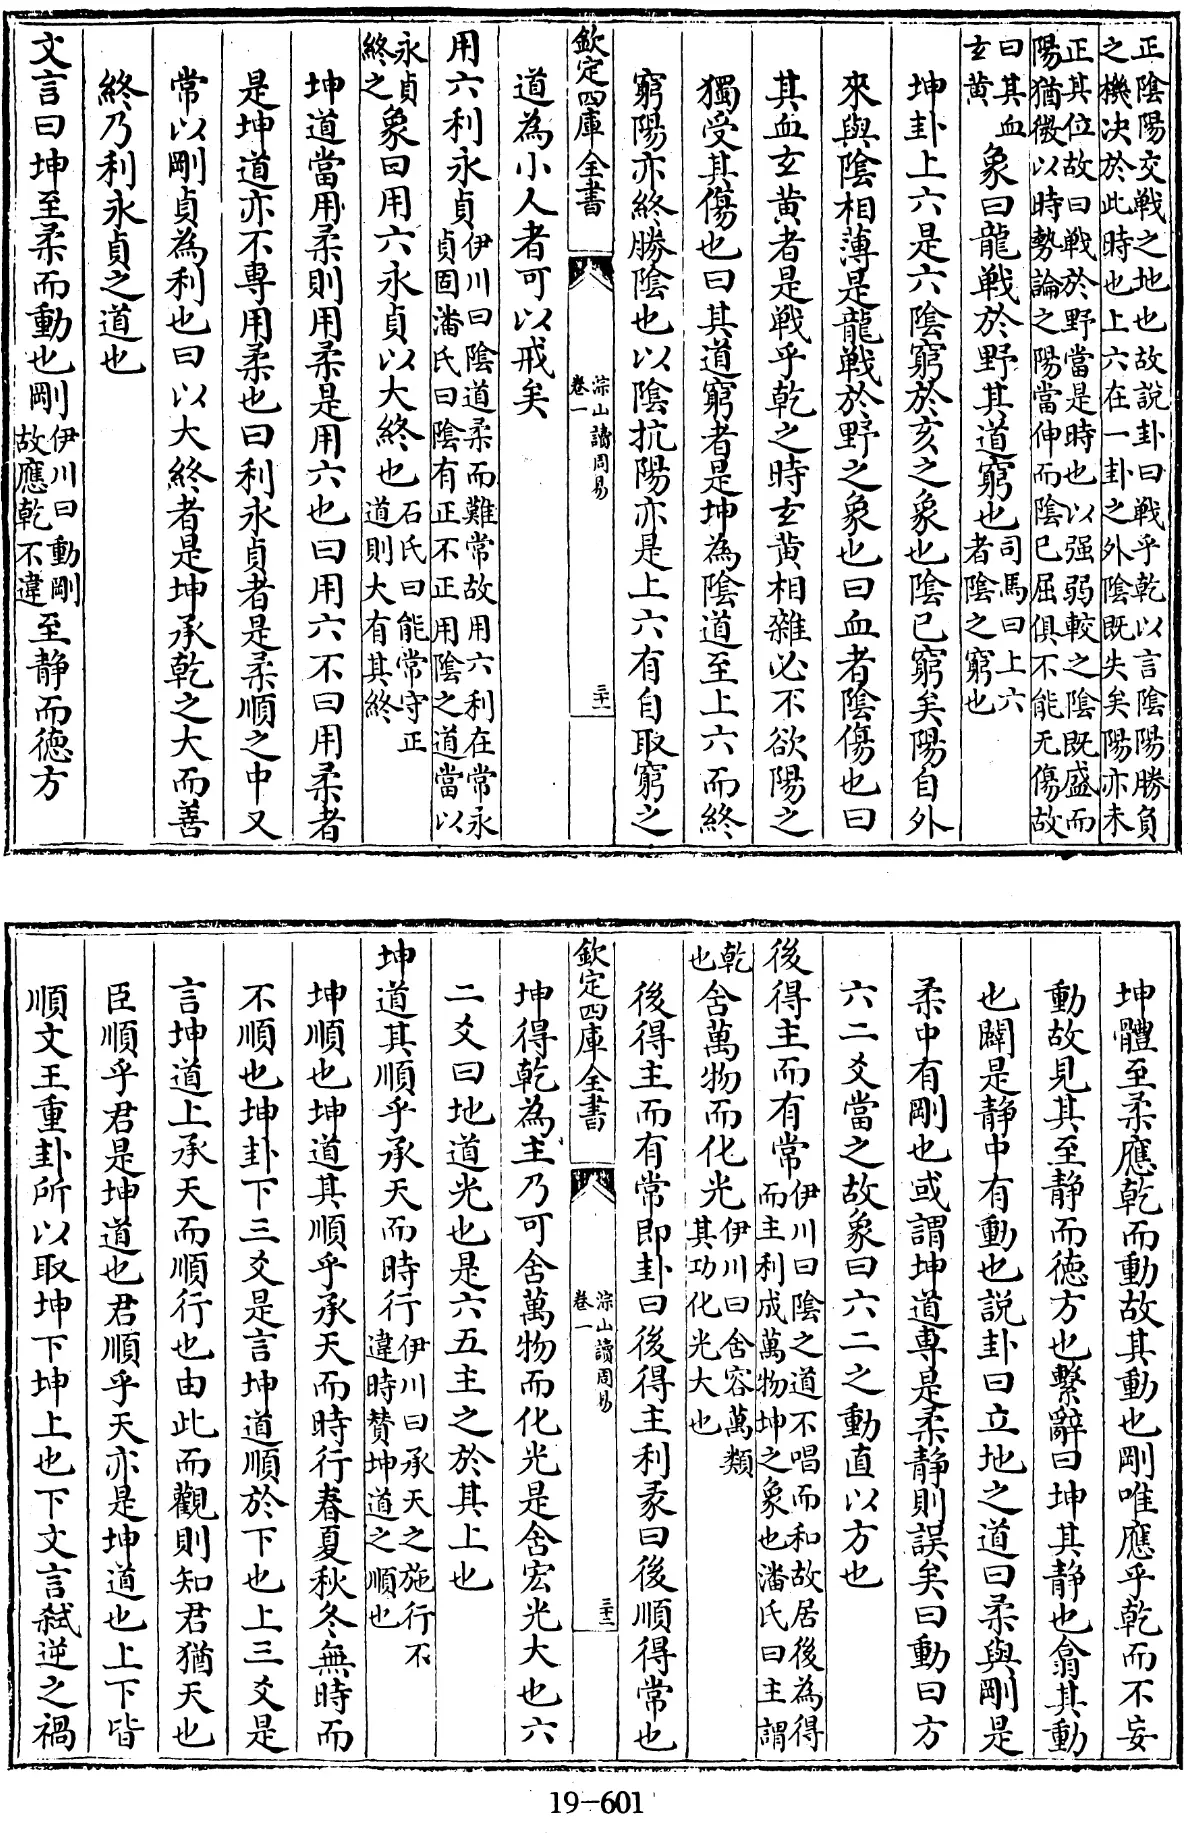 正陰陽交戰之地也故說卦曰戰乎乾以言陰陽勝負
之機决於此時也上六在一卦之外陰既失矣陽亦未
正其位故曰戰於野當是時也以强弱較之陰既盛而
陽猶微以時勢論之陽當伸而陰已屈俱不能无傷故
曰其血
玄黄
象曰龍戰於野其道窮也
司馬曰上六
者陰之窮也
坤卦上六是六陰窮於亥之象也陰已窮矣陽自外
來與陰相薄是龍戰於野之象也曰血者陰傷也曰
其血玄黄者是戰乎乾之時玄黄相雜必不欲陽之
獨受其傷也曰其道窮者是坤為陰道至上六而終
窮陽亦終勝陰也以陰抗陽亦是上六有自取窮之
欽定四庫全書
卷一
淙山讀周易
三十一
道為小人者可以戒矣
用六利永貞
伊川曰陰道柔而難常故用六利在常永
貞固潘氏曰陰有正不正用陰之道當以
永貞
終之
象曰用六永貞以大終也
石氏曰能常守正
道則大有其終
坤道當用柔則用柔是用六也曰用六不曰用柔者
是坤道亦不專用柔也曰利永貞者是柔順之中又
常以剛貞為利也曰以大終者是坤承乾之大而善
終乃利永貞之道也
文言曰坤至柔而動也剛
伊川曰動剛
故應乾不違
至静而德方
坤體至柔應乾而動故其動也剛唯應乎乾而不妄
動故見其至静而德方也繫辭曰坤其静也翕其動
也闢是静中有動也說卦曰立地之道曰柔與剛是
柔中有剛也或謂坤道專是柔静則誤矣曰動曰方
六二爻當之故象曰六二之動直以方也
後得主而有常
伊川曰陰之道不唱而和故居後為得
而主利成萬物坤之象也潘氏曰主謂
乾
也
含萬物而化光
伊川曰含容萬類
其功化光大也
後得主而有常即卦曰後得主利彖曰後順得常也
欽定四庫全書
卷一
淙山讀周易
三十二
坤得乾為主乃可含萬物而化光是含宏光大也六
二爻曰地道光也是六五主之於其上也
坤道其順乎承天而時行
伊川曰承天之施行不
違時賛坤道之順也
坤順也坤道其順乎承天而時行春夏秋冬無時而
不順也坤卦下三爻是言坤道順於下也上三爻是
言坤道上承天而順行也由此而觀則知君猶天也
臣順乎君是坤道也君順乎天亦是坤道也上下皆
順文王重卦所以取坤下坤上也下文言弑逆之禍
19-601